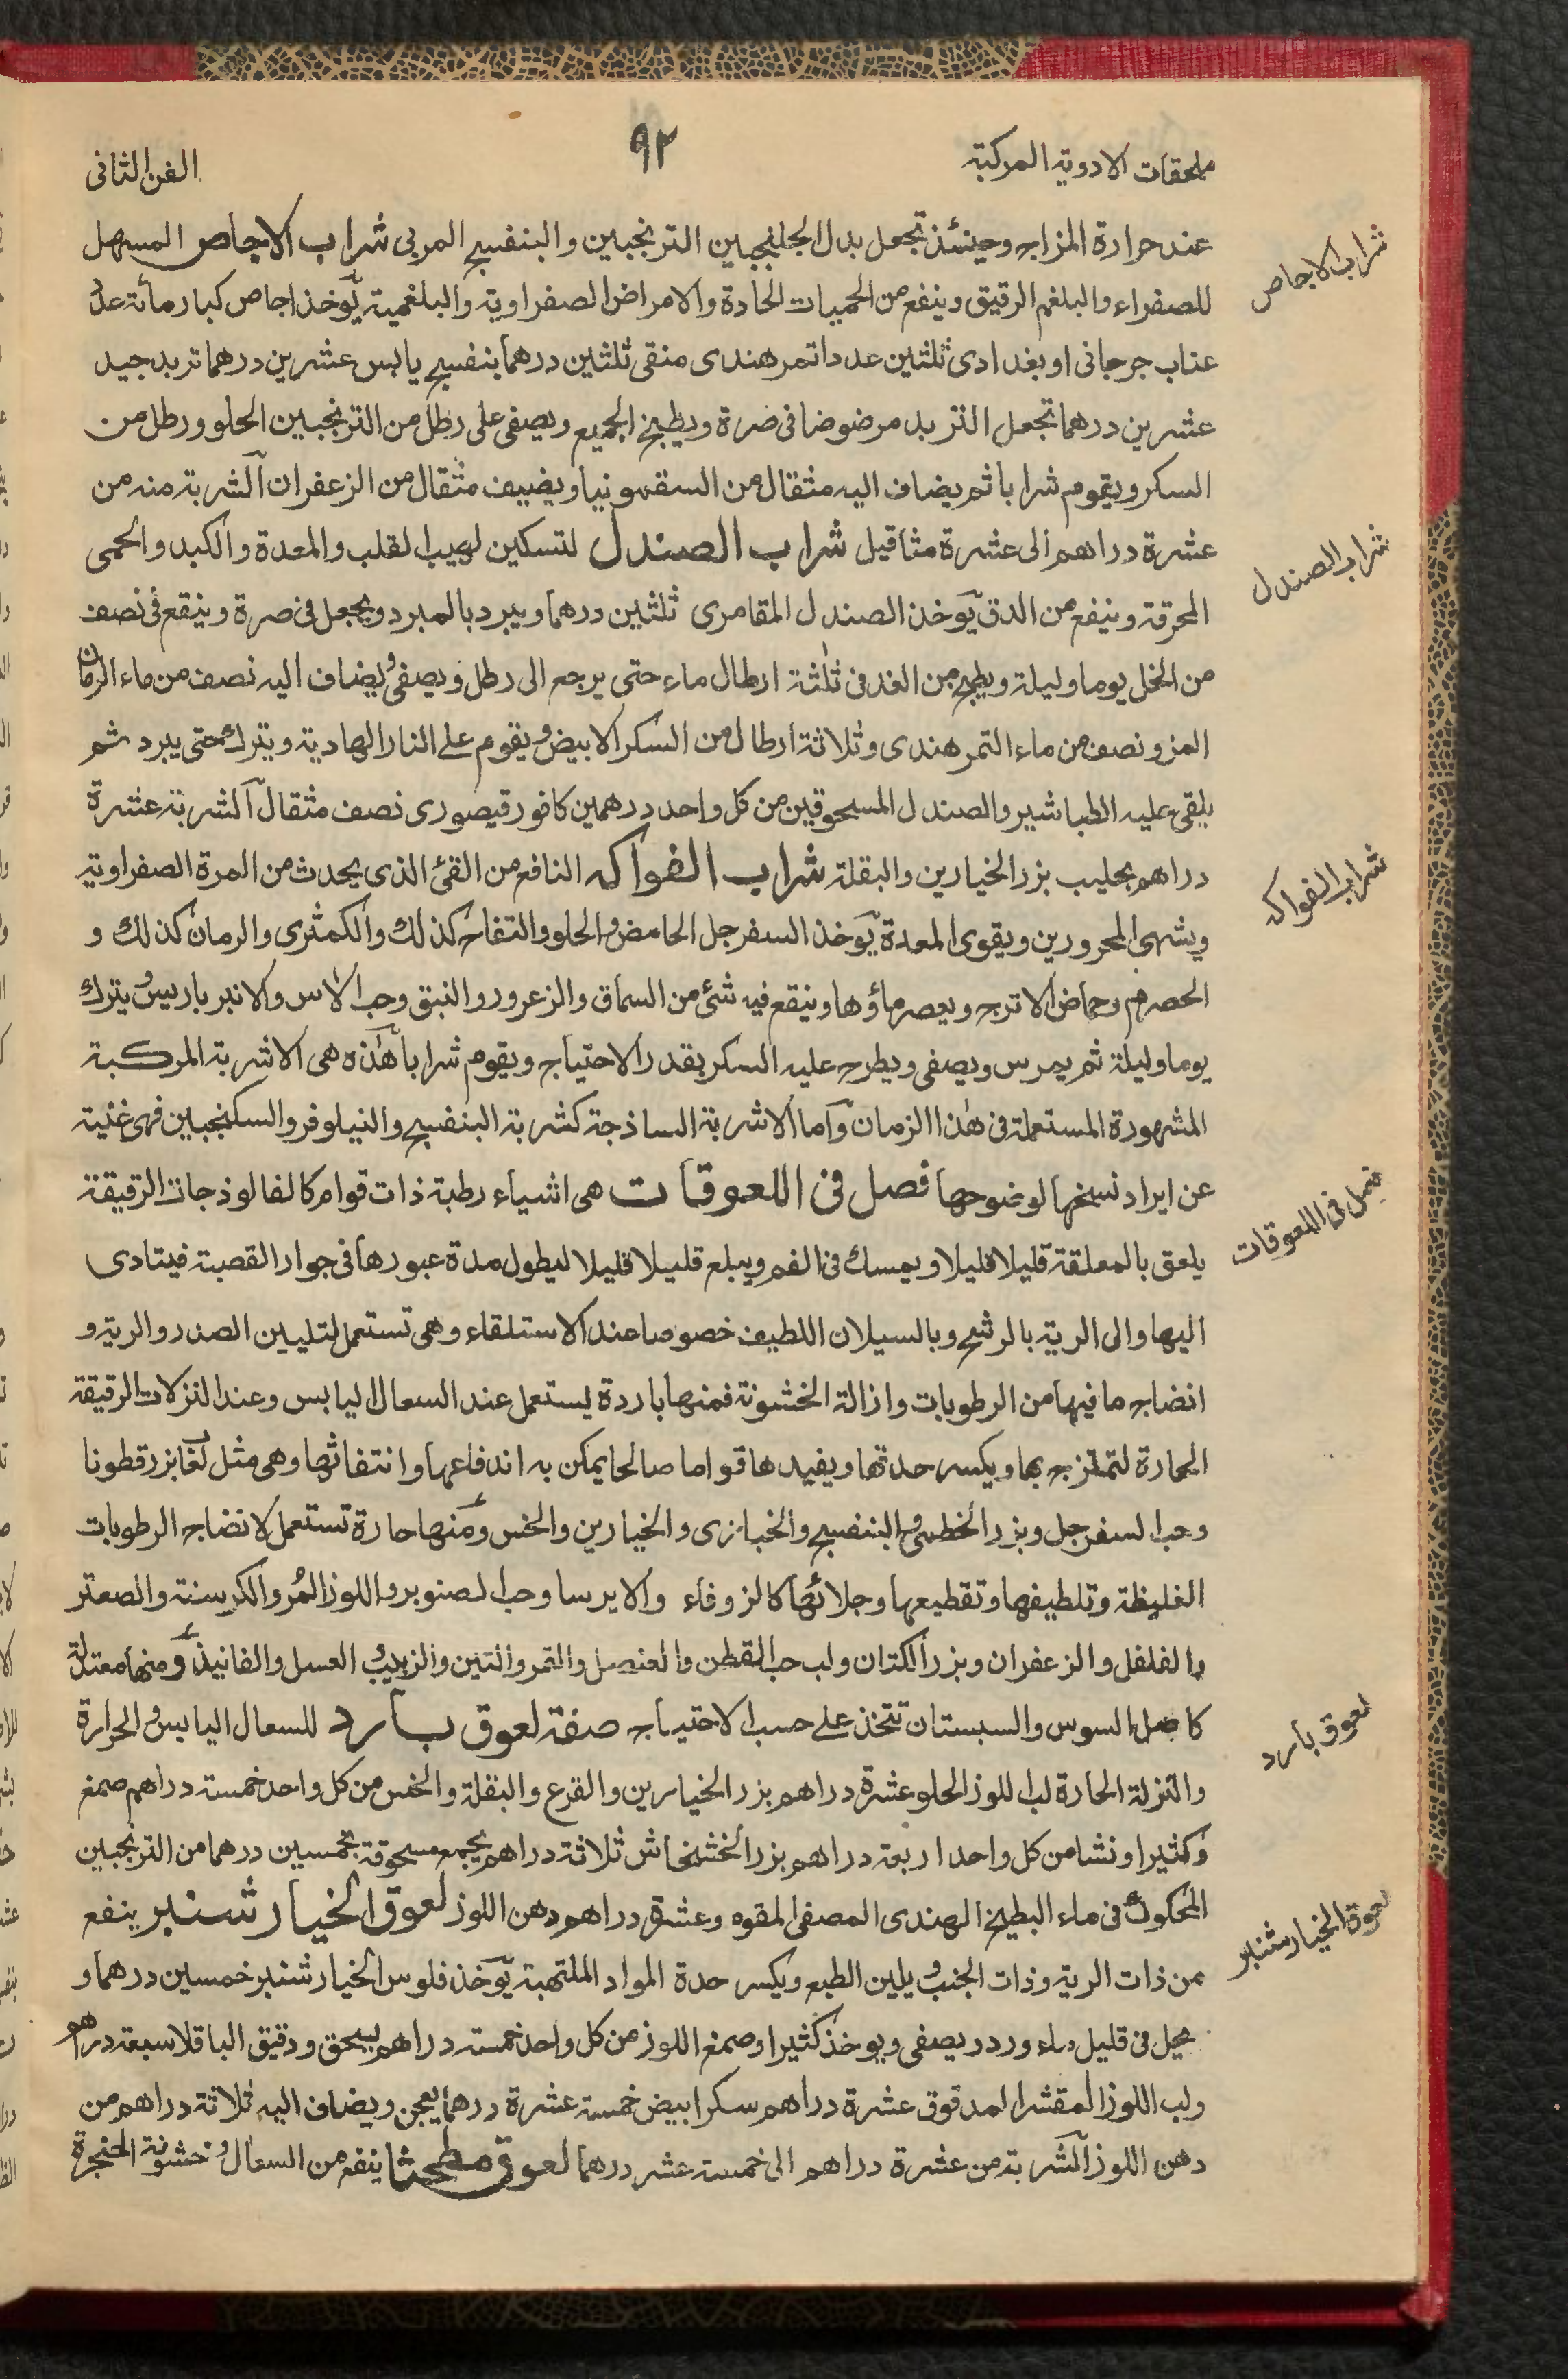 ملحقات الادوية المركبة ٩٢ الفن الثانى
عند حرارة المزاج وحينئذ تجعل بدل الجلنجبين الترنجبين والبنفسج المربى شراب الاجاص المسهل
شراب الاجاص
للصفراء والبلغم الرقيق وينفع من الحميات الحادة والامراض الصفراوية والبلغمية يؤخذ اجاص كبار مائة عدد
عناب جرجانى او بغدادى ثلثين عددا تمر هندى منقى ثلثين درهما بنفسج يابس عشرين درهما تربد جيد
عشرين درهما تجعل التربد مرضوضا فى ضرة ويطبخ الجميع ويصفى على رطل من الترنجبين الحلو ورطل من
السكر ويقوم شرابا ثم يضاف اليه مثقال من السقمونيا ويضيف مثقال من الزعفران الشربة منه من
عشرة دراهم الى عشرة مثاقيل شراب الصندل لتسكين لهيب القلب والمعدة والكبد والحمى
شراب الصندل
المحرقة وينفع من الدق يؤخذ الصندل المقامرى ثلثين درهما ويبرد بالمبرد ويجعل فى صرة وينقع فى نصف
من الخل يوما وليلة ويطبخ من الغد فى ثلثة ارطال ماء حتى يرجع الى رطل ويصفى ويضاف اليه نصف من ماء الرمان
المز ونصف من ماء التمر هندى وثلاثة ارطال من السكر الابيض ويقوم على النار الهادية ويترك حتى يبرد ثم
يلقى عليه الطباشير والصندل المسحوقين من كل واحد درهمين كافور قيصورى نصف مثقال الشربة عشرة
دراهم بحليب بزر الخيارين والبقلة شراب الفواكه النافع من القئ الذى يحدث من المرة الصفراوية
شراب الفواكه
ويشهى المحرورين ويقوى المعدة يؤخذ السفرجل الحامض والحلو والتفاح كذلك والكمثرى والرمان كذلك و
الحصرم وحماض الاترج ويعصر ماؤها وينقع فيه شئ من السماق والزعرور والنبق وحب الاس والانبرباريس ويترك
يوما وليلة ثم يمرس ويصفى ويطرح عليه السكر بقدر الاحتياج ويقوم شرابا هذه هى الاشربة المركبة
المشهورة المستعملة فى هذا الزمان واما الاشربة الساذجة كشربة البنفسج والنيلوفر والسكنجبين فهى غنية
عن ايراد نسخها لوضوحها فصل فى اللعوقات هى اشياء رطبة ذات قوام كالفالوذجات الرقيقة
فصل فى اللعوقات
يلعق بالمعلقة قليلا قليلا ويمسك فى الفم ويبلع قليلا قليلا ليطول مدة عبورها فى جوار القصبة فيتادى
اليها والى الرية بالرشح وبالسيلان اللطيف خصوصا عند الاستلقاء وهى تستعمل لتليين الصدر والرية و
انضاج ما فيها من الرطوبات وازالة الخشونة فمنها باردة يستعمل عند السعال اليابس وعند النزلات الرقيقة
الحارة لتمتزج بها ويكسر حدتها ويفيدها قواما صالحا يمكن به اندفاعها وانتفاثها وهى مثل لعاب بزر قطونا
وحب السفرجل وبزر الخطمى والبنفسج والخبازى والخيارين والخس ومنها حارة تستعمل لانضاج الرطوبات
الغليظة وتلطيفها وتقطيعها وجلائها كالزوفاء والايرسا وحب الصنوبر واللوز المر والكرسنة والصعتر
والفلفل والزعفران وبزر الكتان ولب حب القطن والعنصل والتمر والتين والزبيب والعسل والفانيذ ومنها معتدلة
كاصل السوس والسبستان تتخذ على حسب الاحتياج صفة لعوق بارد للسعال اليابس والحرارة
لعوق بارد
والنزلة الحارة لب اللوز الحلو عشرة دراهم بزر الخيارين والقرع والبقلة والخس من كل واحد خمسة دراهم صمغ
وكثيرا ونشا من كل واحد اربعة دراهم بزر الخشخاش ثلاثة دراهم يجمع مسحوقة بخمسين درهما من الترنجبين
المحكوك فى ماء البطيخ الهندى المصفى المقوه وعشرة دراهم دهن اللوز لعوق الخيارشنبر ينفع
لعوق الخيارشنبر
من ذات الرية وذات الجنب ويلين الطبع ويكسر حدة المواد الملتهبة يؤخذ فلوس الخيارشنبر خمسين درهما و
يحل فى قليل ماء ورد ويصفى ويوخذ كثيرا وصمغ اللوز من كل واحد خمسة دراهم يسحق ودقيق الباقلا سبعة دراهم
ولب اللوز المقشر المدقوق عشرة دراهم سكر ابيض خمسة عشرة درهما يعجن ويضاف اليه ثلاثة دراهم من
دهن اللوز الشربة من عشرة دراهم الى خمسة عشر درهما لعوق ينفع من السعال وخشونة الحنجرة